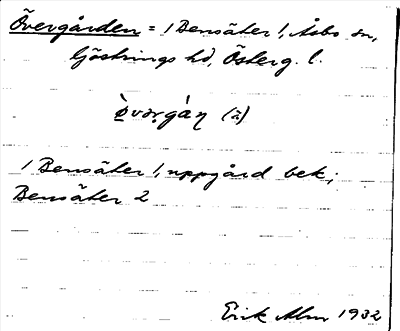 Övergården = / Bensäter /, Åsbo sn,
Göstrings hd, Österg. l.
(a)
/ Bensäter /, uppgård bek;
Bensäter 2
Erik Alm 1932